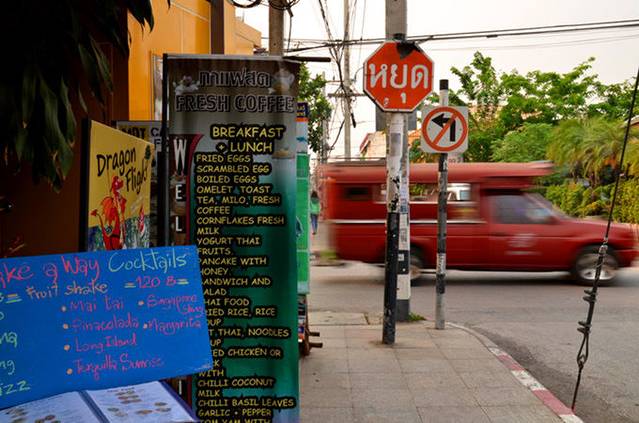 กาแฟสด
FRESH COFFEE
BREAKFAST
+ LUNCH
FRIED EGGS
SCRAMBLED EGG
BOILED EGGS
OMELET TOAST
TEA, MILO, FRESH
COFFEE
CORNFLAKES FRESH
MILK
YOGURT THAI
FRUITS.
PANCAKE WITH
HONEY.
SANDWICH AND
SALAD
THAI FOOD
FRIED RICE, RICE
THAI, NOODLES
CHICKEN OR
WITH
CHILLI COCONUT
MILK
CHILLI BASIL LEAVES
GARLIC + PEPPER
TOM YAM WITH
WEL
Dragon
Flight
a Way Cocktails
Fruit shake = 120 B =
• Mai tai • Singapore
Sling
• Pinacolada • Margarita
• Long Island
• Tequilla Sunrise
หยุด